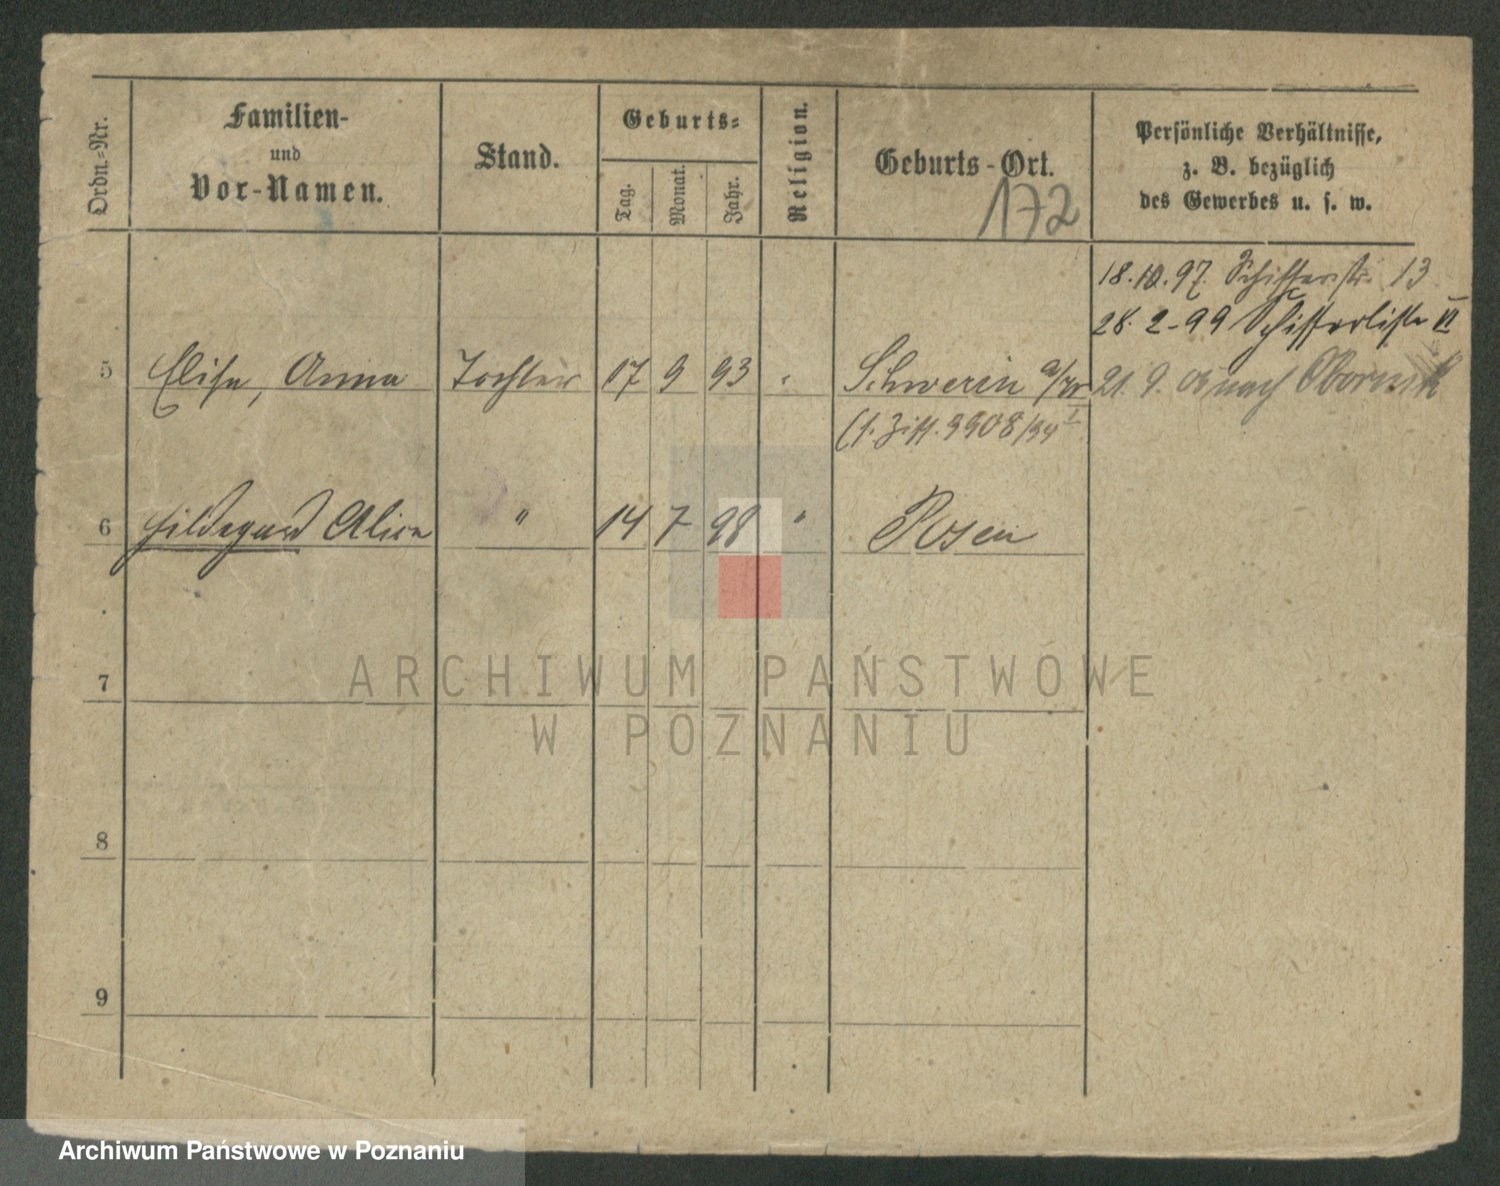 Ordn.-Nr.
Familien-
und
Vor-Namen.
Stand.
Geburts-
Tag.
Monat.
Jahr.
Religion.
Geburts-Ort.
172
Persönliche Verhältnisse,
z. B. bezüglich
des Gewerbes u. s. w.
18.10.97. Schifferstr. 13
28. 2. 99 Schifferliste VI
5 Elise, Anna Tochter 17 9 93 " Schwerin a/W 21. 9. nach Obornik
(f. Ziff. 9908/94 I
6 Hildegard Alice " 14 7 98 " Posen
7
8
9
ARCHIWUM PAŃSTWOWE
W POZNANIU
Archiwum Państwowe w Poznaniu